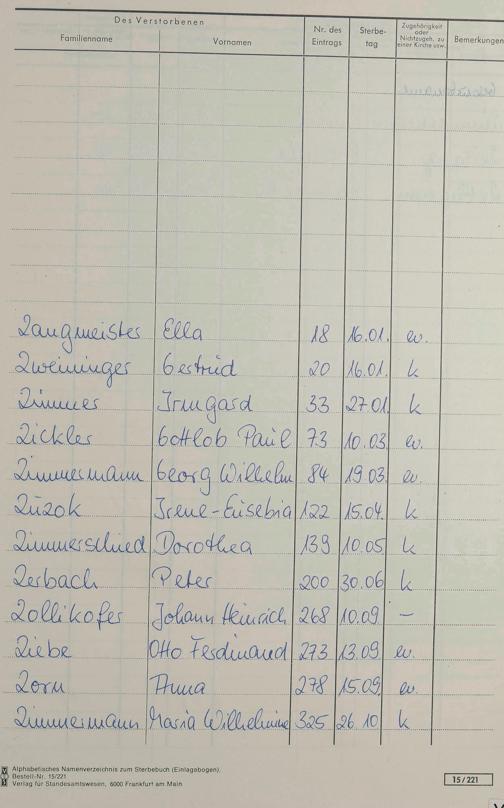 Des Verstorbenen
Familienname Vornamen Nr. des Eintrags Sterbe-tag Zugehörigkeit oder Nichtzugeh. zu einer Kirche usw. Bemerkungen
Zaugmeister Ella 18 16.01. ev.
Zweininger Gertrud 20 16.01. k
Zimmer Irmgard 33 27.01 k
Zickler Gottlob Paul 73 10.03 ev.
Zimmermann Georg Wilhelm 84 19.03 ev.
Zuzok Irene-Eusebia 122 15.04. k
Zimmerschied Dorothea 139 10.05 k
Zerbach Peter 200 30.06 k
Zollikofer Johann Heinrich 268 10.09 –
Ziebe Otto Ferdinand 273 13.09 ev.
Zorn Anna 278 15.09. ev.
Zimmermann Maria Wilhelmine 325 26.10 k
Alphabetisches Namenverzeichnis zum Sterbebuch (Einlagebogen).
Bestell-Nr. 15/221
Verlag für Standesamtswesen, 6000 Frankfurt am Main
15/221